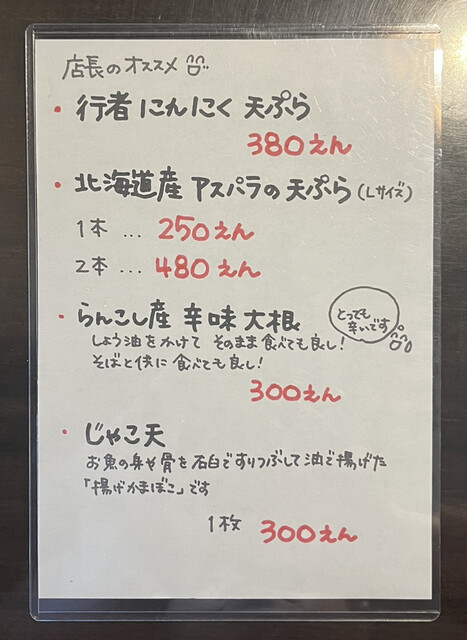 店長のオススメ
・行者にんにく 天ぷら
380えん
・北海道産 アスパラの天ぷら(Lサイズ)
1本 … 250えん
2本 … 480えん
・らんこし産 辛味大根
とっても
辛いです
しょう油をかけて そのまま食べても良し!
そばと供に食べても良し!
300えん
・じゃこ天
お魚の身や骨を石臼ですりつぶして油で揚げた
「揚げかまぼこ」です
1枚 300えん